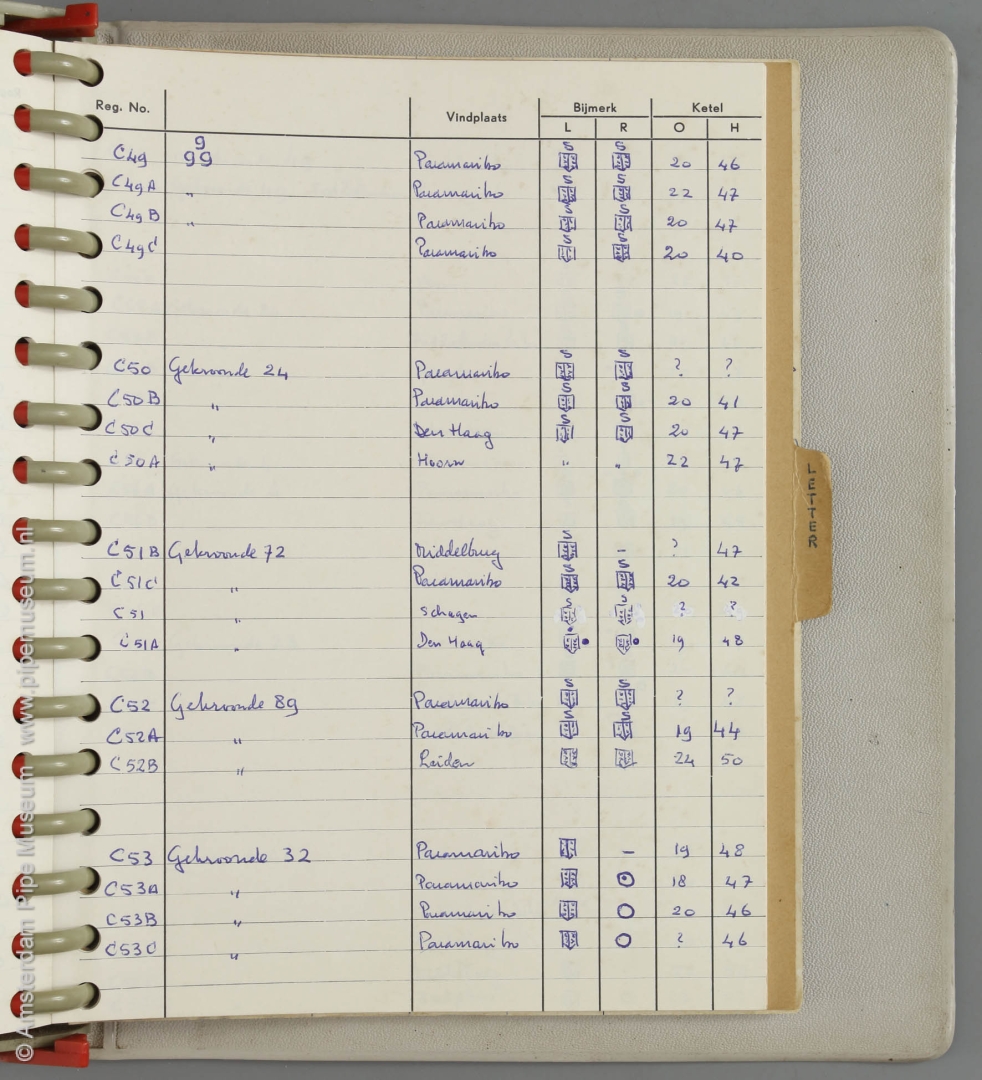 Reg. No. Vindplaats Bijmerk Ketel
L R O H
9
C49 99 Paramaribo S S 20 46
C49A " Paramaribo S S 22 47
C49B " Paramaribo S S 20 47
C49C Paramaribo S S 20 40
C50 Gekroonde 24 Paramaribo S S ? ?
C50B " Paramaribo S S 20 41
C50C " Den Haag S S 20 47
C50A " Hoorn " " 22 47
C51B Gekroonde 72 Middelburg S – ? 47
C51C " Paramaribo S S 20 42
C51 " Schagen S S ? ?
C51A " Den Haag 19 48
C52 Gekroonde 89 Paramaribo S S ? ?
C52A " Paramaribo S S 19 44
C52B " Leiden 24 50
C53 Gekroonde 32 Paramaribo – 19 48
C53A " Paramaribo 18 47
C53B " Paramaribo 20 46
C53C " Paramaribo ? 46
LETTER
© Amsterdam Pipe Museum www.pipemuseum.nl